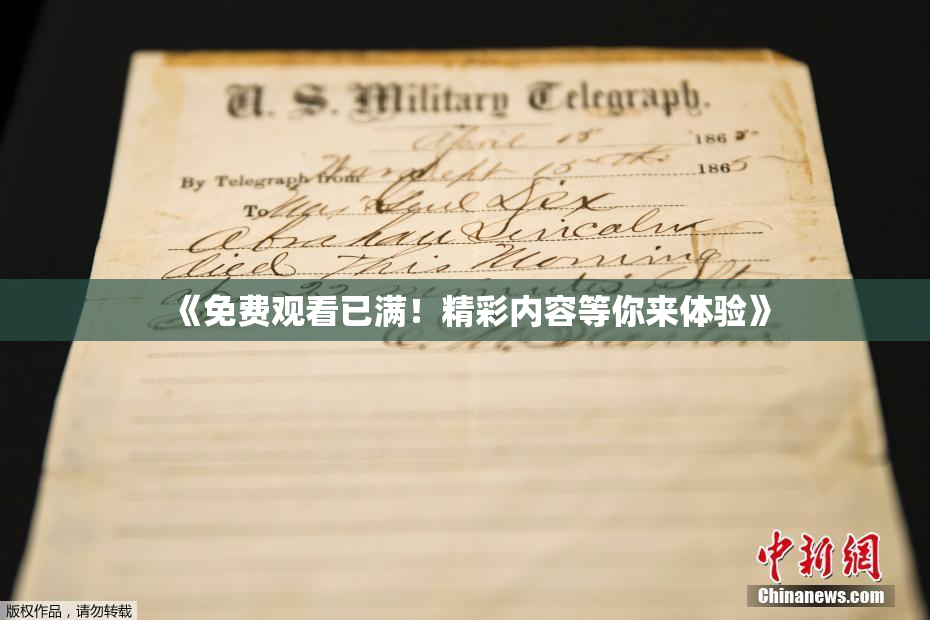 U. S. Military Telegraph.
April 15 1865
By Telegraph from War Dept 15th 1865
To Maj Genl Dix
Abraham Lincoln
died This Morning
at 22 minutes after
《免费观看已满！精彩内容等你来体验》
E. M. Stanton
中新网
Chinanews.com
版权作品，请勿转载